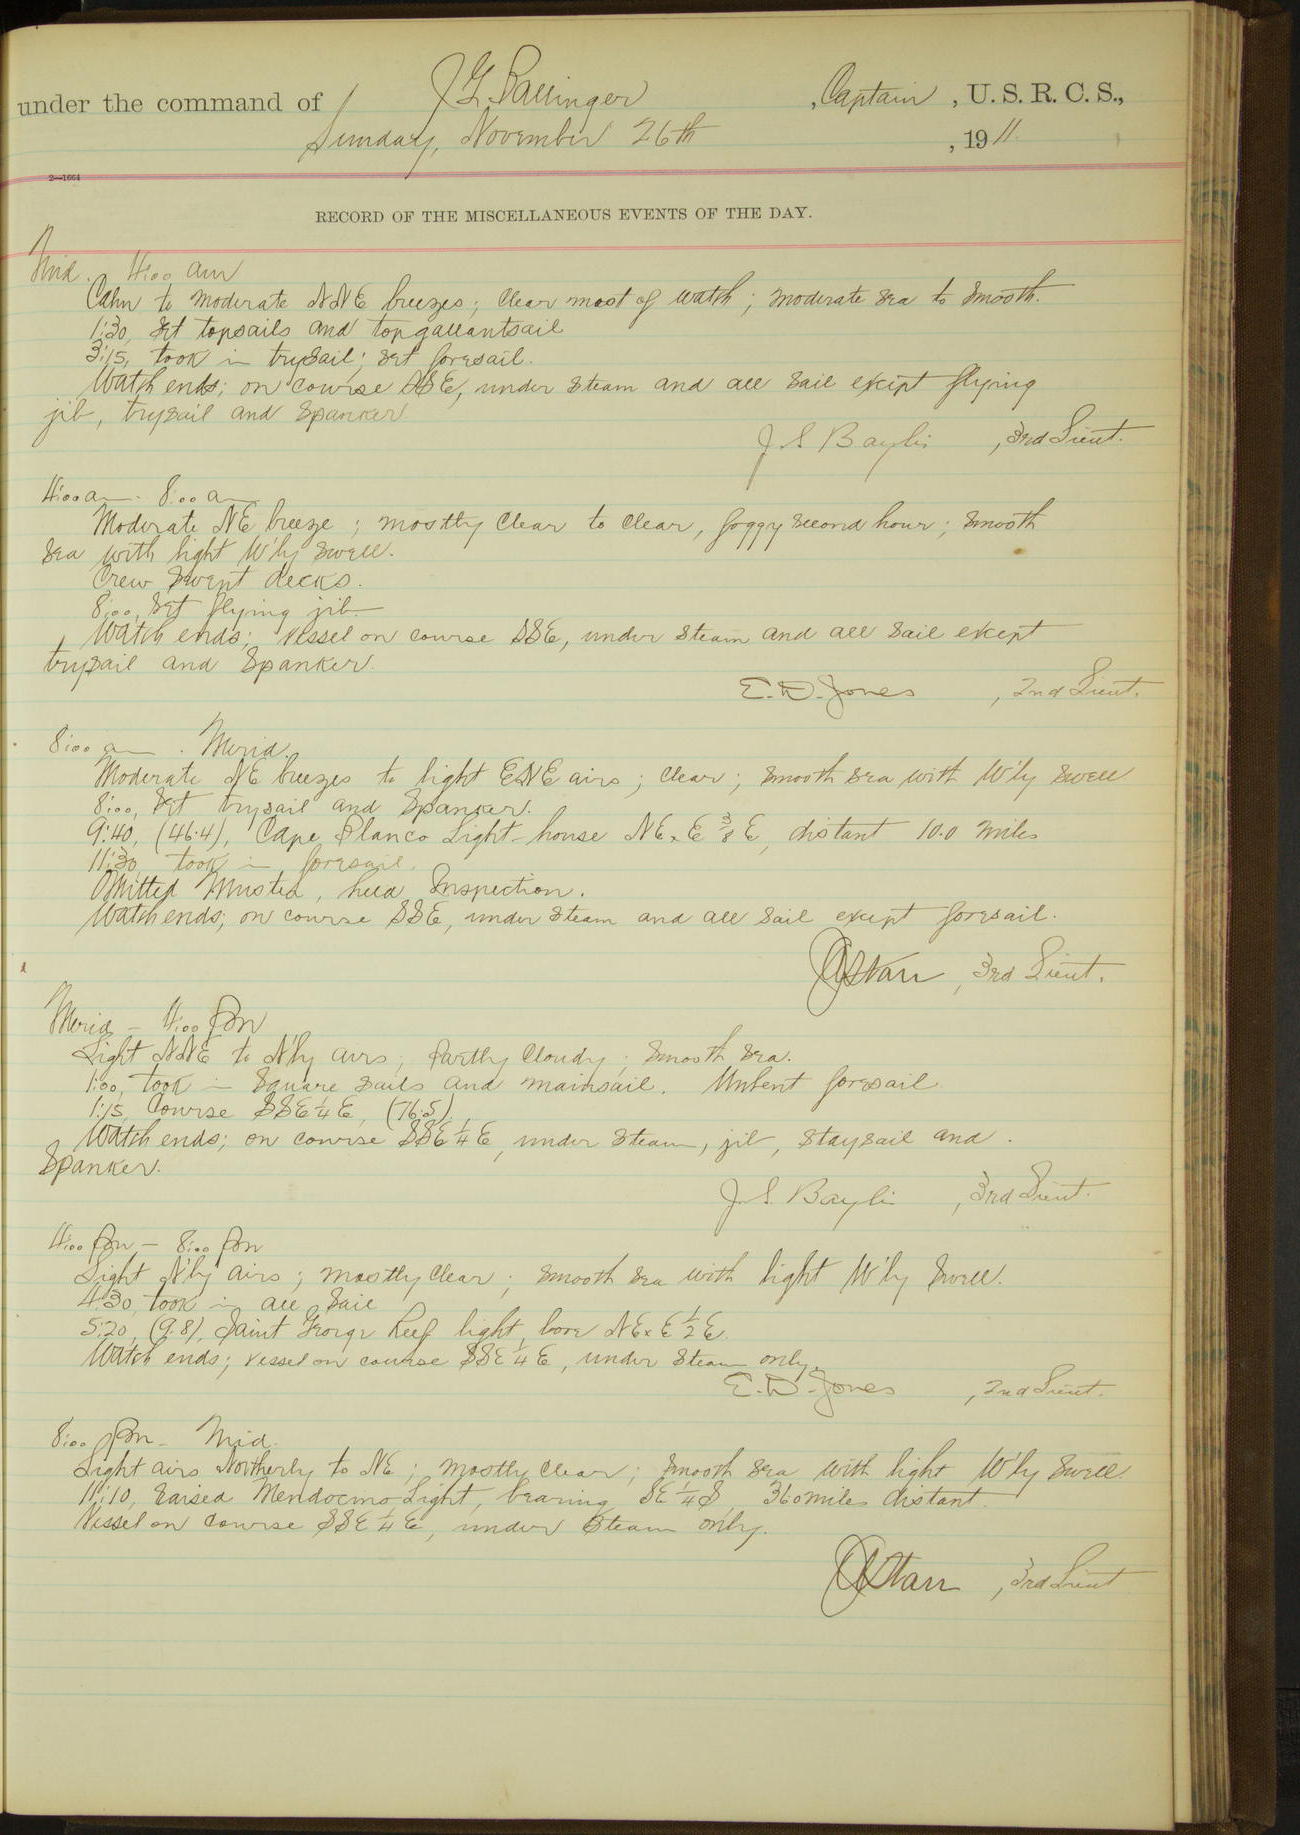 under the command of J G Ballinger , Captain , U. S. R. C. S.,
Sunday, November 26th , 1911
2—1664
RECORD OF THE MISCELLANEOUS EVENTS OF THE DAY.
Mid. 4:00 am
Calm to moderate NNE breezes; clear most of watch; moderate sea to smooth.
1:30, Set topsails and topgallantsail
3:15, took in trysail; set foresail.
Watch ends; on course SSE, under steam and all sail exept flying
jib, trysail and Spanker
J. S Baylis , 3rd Lieut.
4:00 am - 8:00 am
Moderate NE breeze; mostly clear to clear, foggy second hour; smooth
sea with light W'ly swell.
Crew swept decks.
8:00, Set flying jib
Watch ends; vessel on course SSE, under steam and all sail except
trysail and Spanker.
E. D. Jones , 2nd Lieut.
8:00 am . Merid.
Moderate NE breezes to light ENE airs; clear; smooth sea with W'ly swell
8:00, Set trysail and Spanker.
9:40, (46.4), Cape Blanco Light-house NE x E 3/8 E, distant 10.0 miles
11:30 took in foresail.
Omitted Muster, held Inspection.
Watch ends; on course SSE, under steam and all sail except foresail.
Starr , 3rd Lieut.
Merid - 4:00 Pm
Light NNE to N'ly airs; partly cloudy; smooth sea.
1:00, took in square sails and mainsail. Unbent foresail
1:15, Course SSE 1/4 E, (76.5).
Watch ends; on course SSE 1/4 E, under steam, jib, staysail and
Spanker.
J. S. Baylis , 3rd Lieut.
4:00 Pm - 8:00 Pm
Light N'ly airs; mostly clear; smooth sea with light W'ly swell.
4:30, took in all sail
5:20, (9.8), Saint George Reef light, bore NE x E 1/2 E.
Watch ends; vessel on course SSE 1/4 E, under steam only.
E. D. Jones , 2nd Lieut.
8:00 Pm - Mid.
Light airs Northerly to NE; mostly clear; smooth sea with light W'ly swell.
11:10, raised Mendocino Light, bearing SE 1/4 S, 36.0 miles distant.
Vessel on course SSE 1/4 E, under steam only.
Starr , 3rd Lieut